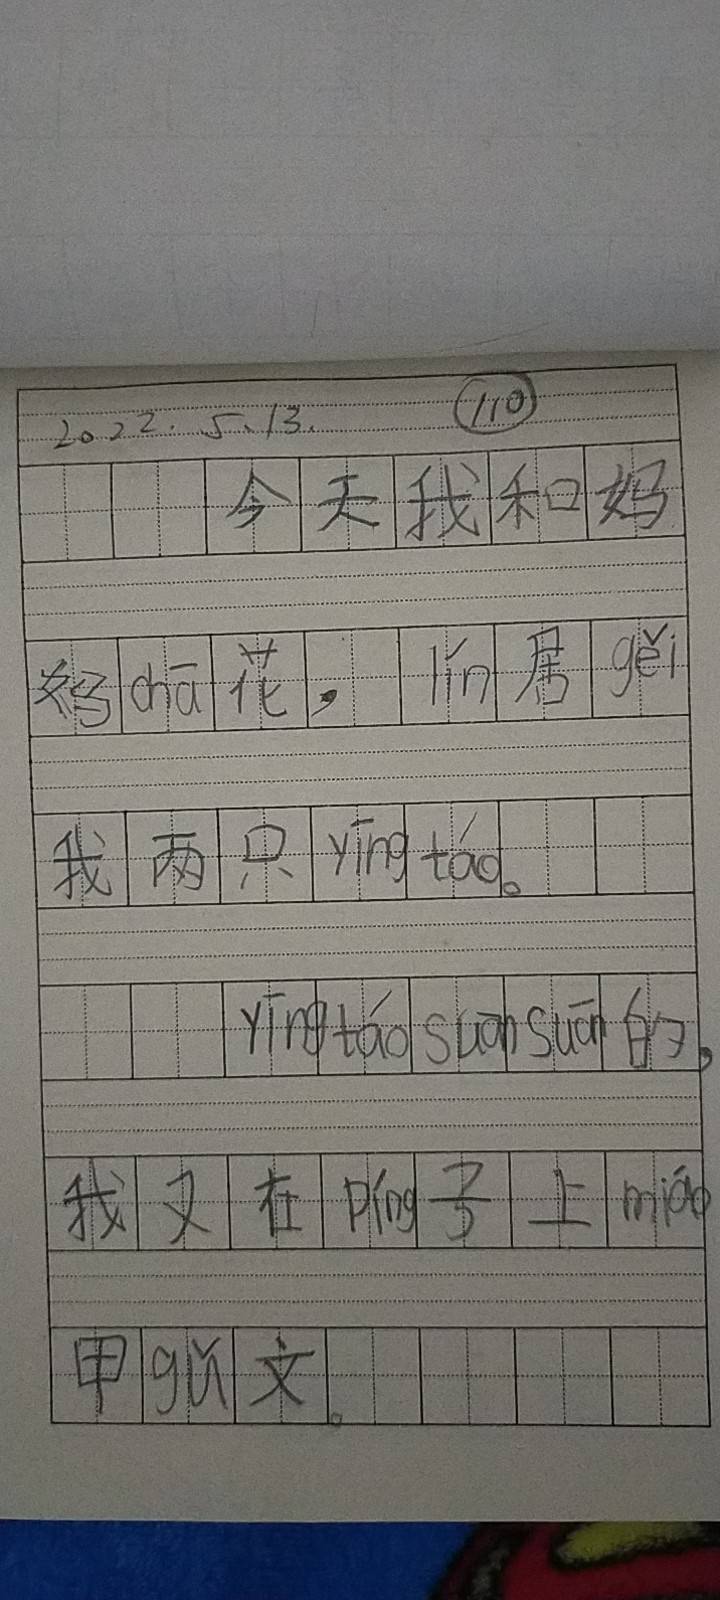 2022.5.13. 110
今天我和妈
妈chā花，lín居gěi
我两只yīngtáo。
yīngtáosuānsuān的，
我又在píng子上miáo
甲gǔ文。